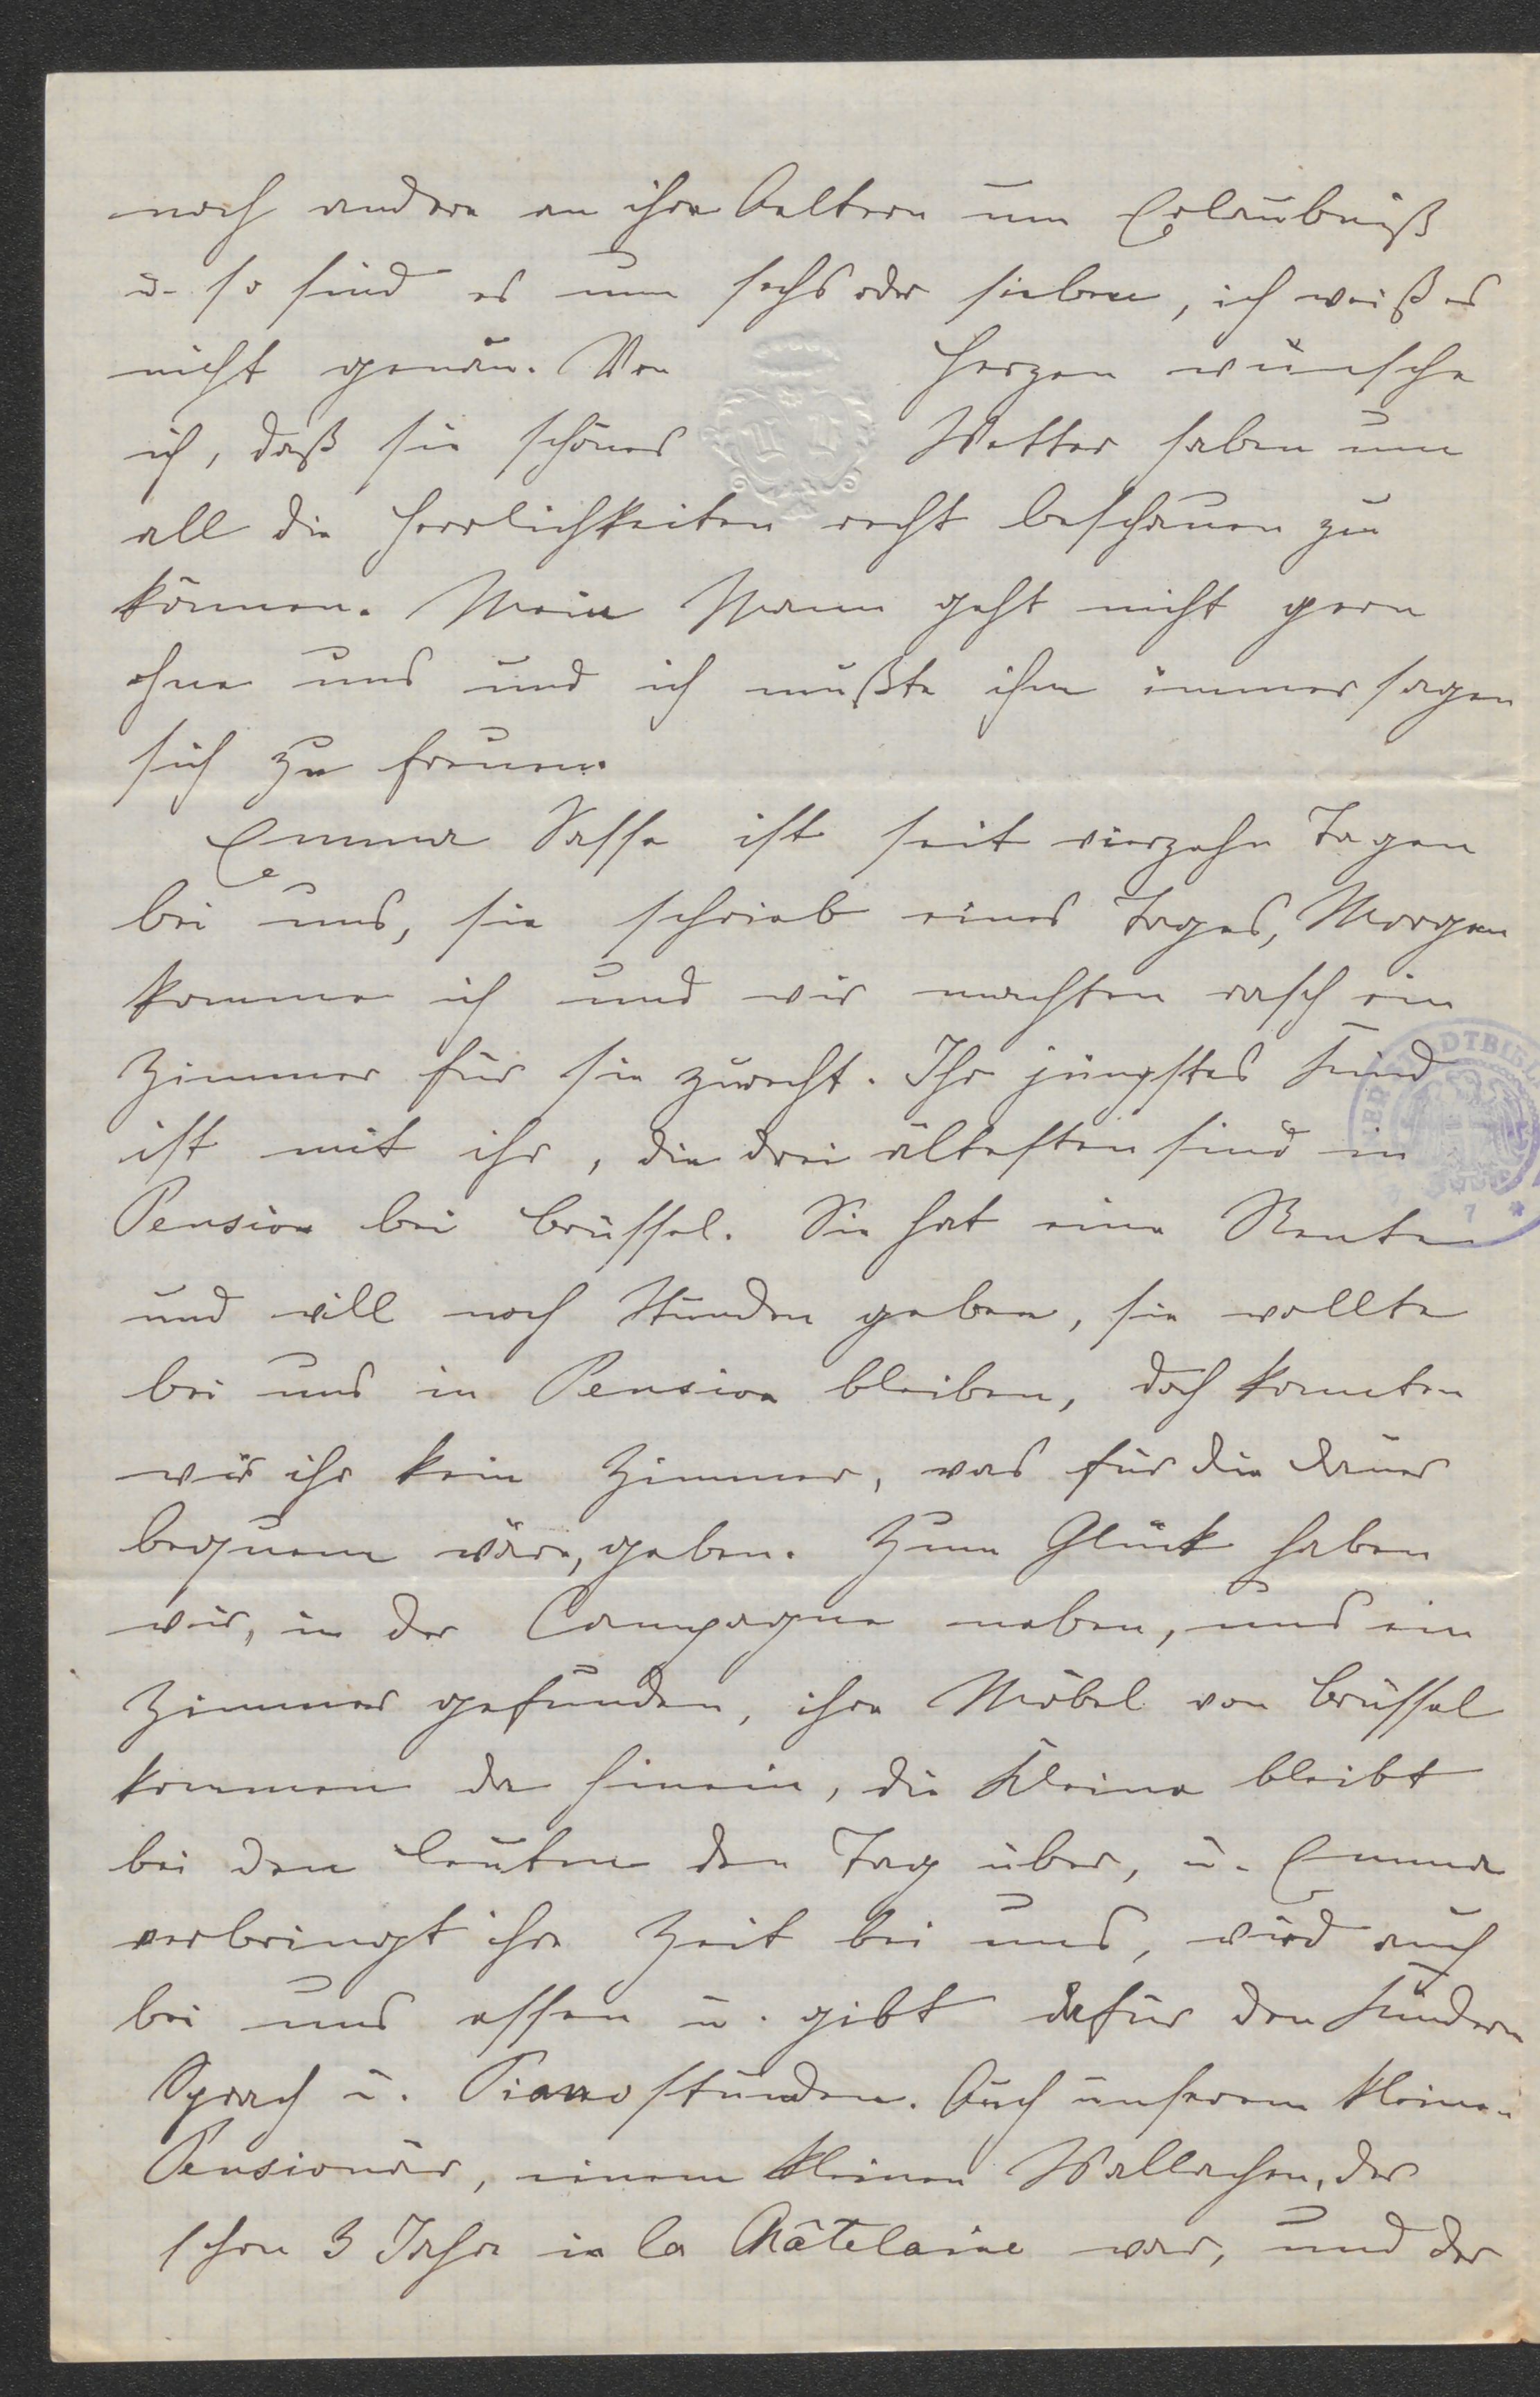 noch andere an ihre Aeltern um Erlaubniß
u. so sind es nun sechs oder sieben, ich weiß es
nicht genau. Von Herzen wünsche
ich, daß sie schönes Wetter haben um
all die Herrlichkeiten recht beschauen zu
können. Mein Mann geht nicht gern
ohne uns und ich mußte ihm immer sagen
sich zu freuen.
Emma Sasse ist seit vierzehn Tagen
bei uns, sie schrieb eines Tages, Morgen
komme ich und wir machten rasch ein
Zimmer für sie zurecht. Ihr jüngstes Kind
ist mit ihr, die drei ältesten sind in
Pension bei Brüssel. Sie hat eine Rente
und will noch Stunden geben, sie wollte
bei uns in Pension bleiben, doch konnten
wir ihr kein Zimmer, was für die Dauer
bequem wäre, geben. Zum Glück haben
wir, in der Campagne neben, uns ein
Zimmer gefunden, ihre Möbel von Brüssel
kommen da hinein, die Kleine bleibt
bei den Leuten den Tag über, u. Emma
verbringt ihre Zeit bei uns, wird auch
bei uns essen u. gibt dafür den Kindern
Sprach u. Pianostunden. Auch unserem kleinen
Pensionär, einem kleinen Wallachen, der
schon 3 Jahre in la Châtelaine war, und der